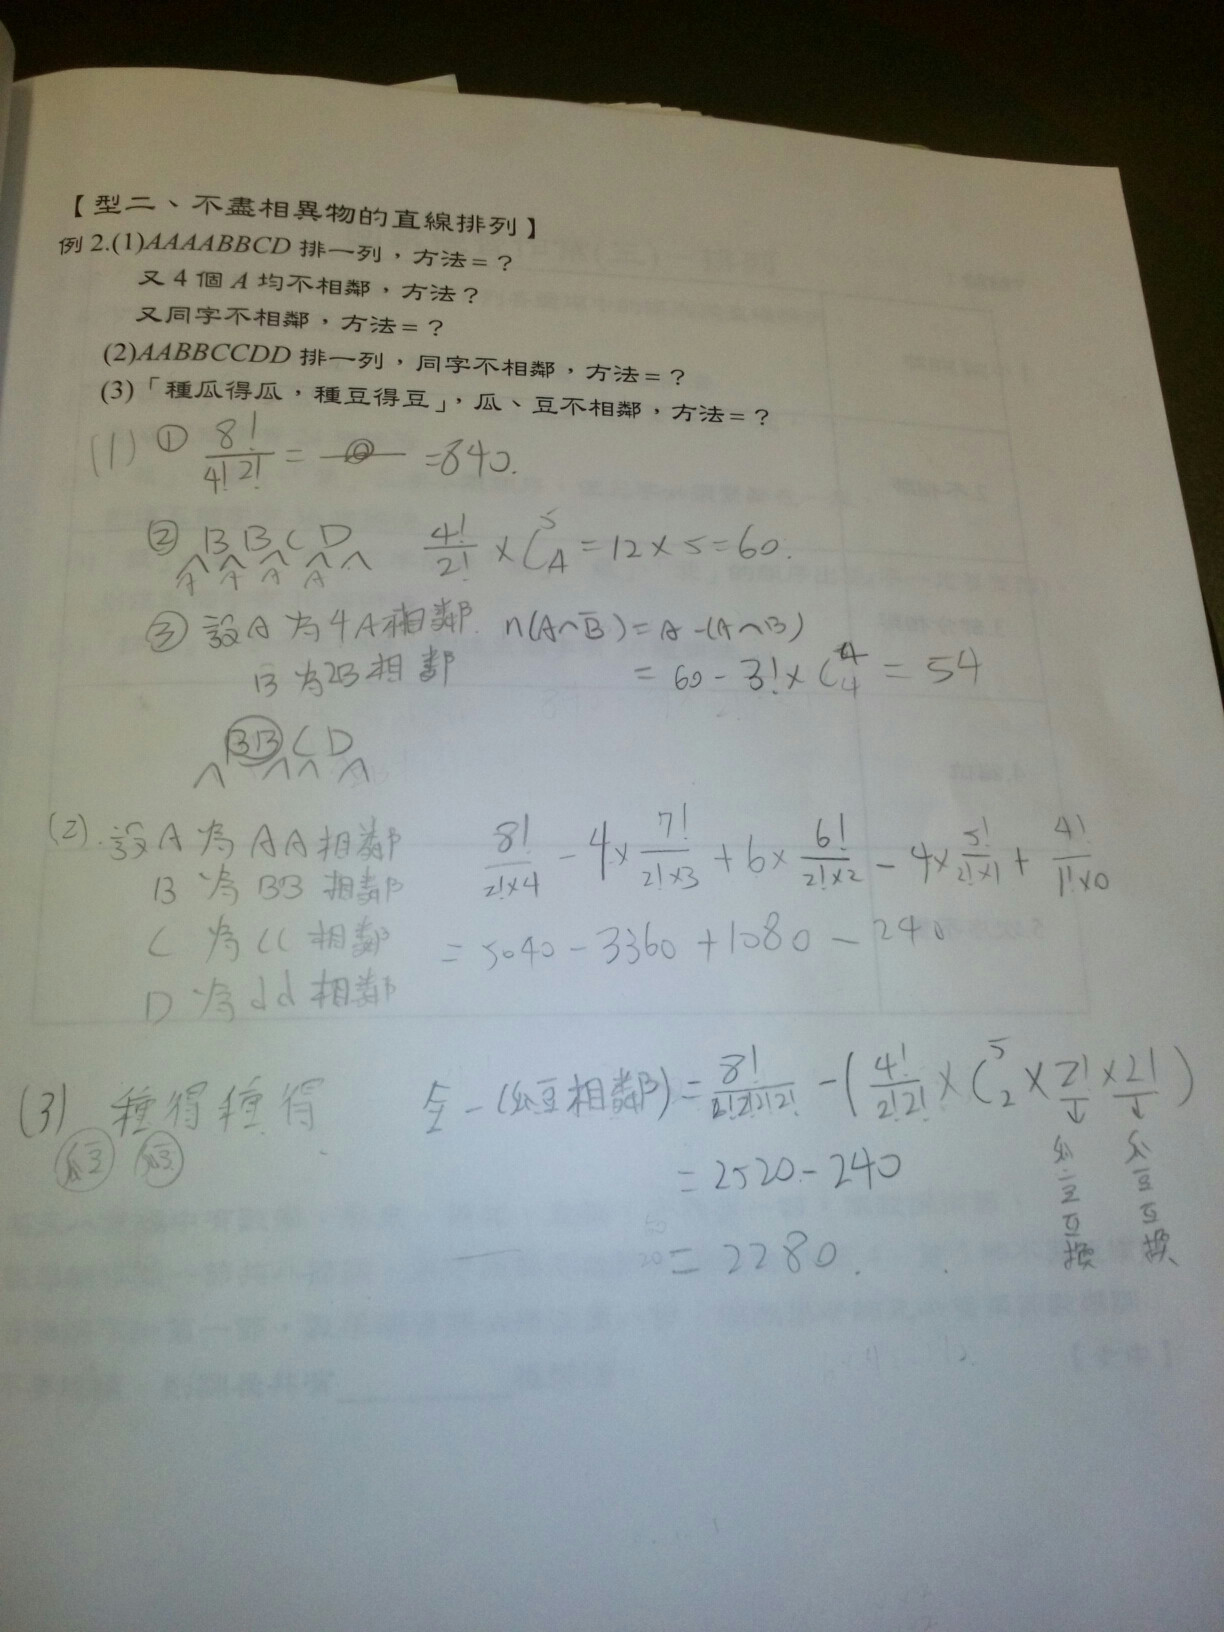 【型二、不盡相異物的直線排列】
例 2.(1)AAAABBCD 排一列，方法=？
又 4 個 A 均不相鄰，方法？
又同字不相鄰，方法=？
(2)AABBCCDD 排一列，同字不相鄰，方法=？
(3)「種瓜得瓜，種豆得豆」，瓜、豆不相鄰，方法=？
(1) ① 8!/4!2! = =840.
② B B C D 4!/2! × C^5_A = 12×5=60.
A A A A
③ 設A 為4A相鄰. n(A∩B̄) = A-(A∩B)
B 為2B相鄰 = 60-3!×C^4_4 = 54
BB C D
(2). 設A 為 AA 相鄰 8!/2!×4 - 4×7!/2!×3 + 6×6!/2!×2 - 4×5!/2!×1 + 4!/1!×0
B 為 BB 相鄰
C 為 CC 相鄰 = 5040-3360+1080-240
D 為 dd 相鄰
(3) 種得種得 全-(瓜豆相鄰) = 8!/2!2!2!2! - (4!/2!2! × C^5_2 × 2! × 2!)
瓜豆 瓜豆 ↓ ↓
= 2520-240 瓜豆互換 瓜豆互換
= 2280.